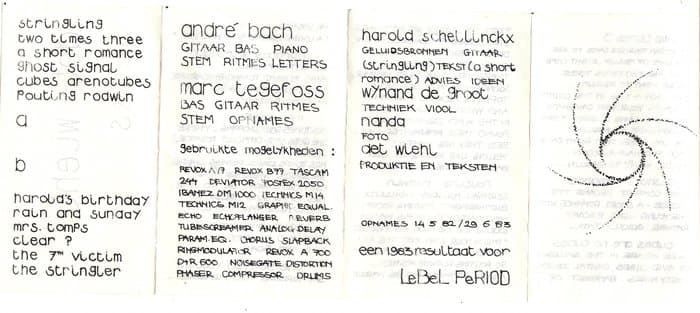 stringling
two times three
a short romance
ghost signal
cubes arenotubes
pouting rodwin
a
b
harold's birthday
rain and sunday
mrs. tomps
clear ?
the 7TH victim
the stringler
andré bach
GITAAR BAS PIANO
STEM RITMES LETTERS
marc tegefoss
BAS GITAAR RITMES
STEM OPNAMES
gebruikte mogelykheden :
REVOX A77 REVOX B77 TASCAM
244 DEVIATOR FOSTEX 2050
IBANEZ DM 1000 TECHNICS M14
TECHNICS M12 GRAPHIC EQUAL.
ECHO ECHOFLANGER REVERB
TUBESCREAMER ANALOG DELAY
PARAM.EQ. CHORUS SLAPBACK
RINGMODULATOR REVOX A 700
D+R 600 NOISEGATE DISTORTION
PHASER COMPRESSOR DRUMS
harold schellinckx
GELUIDSBRONNEN GITAAR
(stringling) TEKST (a short
romance) ADVIES IDEEN
wynand de groot
TECHNIEK VIOOL
nanda
FOTO
det wiehl
PRODUKTIE EN TEKSTEN
OPNAMES 14 5 82/29 6 83
een 1983 resultaat voor
LeBeL PeRIOD